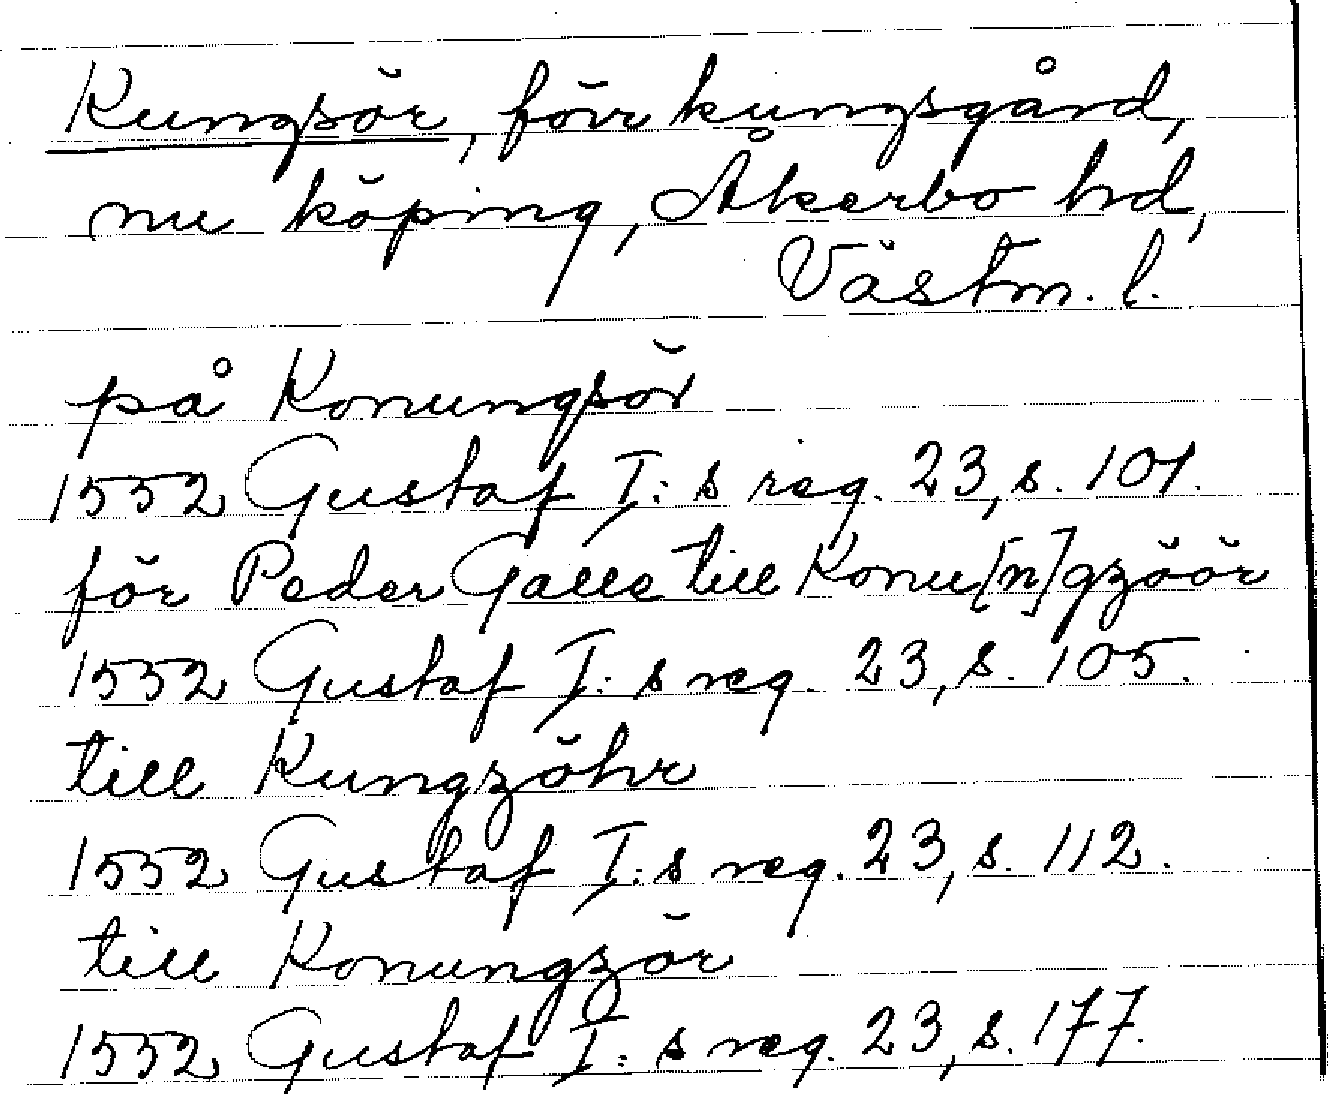 Kungsör, förr kungsgård,
nu köping, Åkerbo hd,
Västm. l.
på Konungsör
1552 Gustaf I:s reg. 23, s. 101.
för Peder Galle till Konu[n]gzöör
1552 Gustaf I:s reg. 23, s. 105.
till Kungzöhr
1552 Gustaf I:s reg. 23, s. 112.
till Konungzör
1552 Gustaf I:s reg. 23, s. 177.